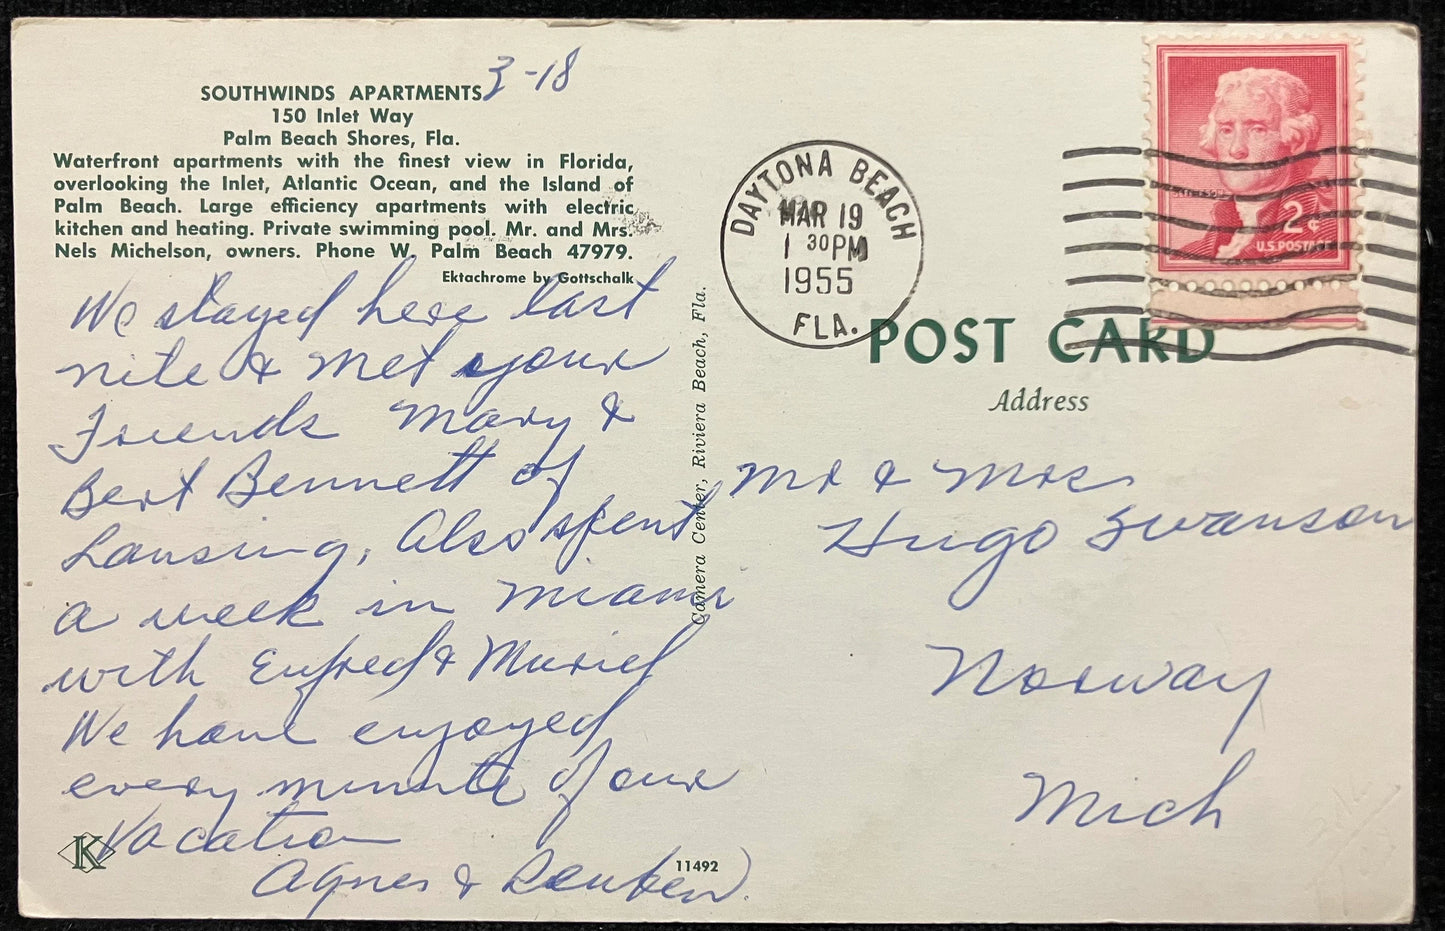 3-18
SOUTHWINDS APARTMENTS
150 Inlet Way
Palm Beach Shores, Fla.
Waterfront apartments with the finest view in Florida,
overlooking the Inlet, Atlantic Ocean, and the Island of
Palm Beach. Large efficiency apartments with electric
kitchen and heating. Private swimming pool. Mr. and Mrs.
Nels Michelson, owners. Phone W. Palm Beach 47979.
Ektachrome by Gottschalk
We stayed here last
nite & met your
Friends Mary &
Bert Bennett of
Lansing, Also spent
a week in Miami
with & Muriel
We have enjoyed
every minute of our
Vacation
Agnes & Reuben
K
11492
Camera Center, Riviera Beach, Fla.
DAYTONA BEACH
MAR 19
1 30 PM
1955
FLA.
2¢
U.S. POSTAGE
POST CARD
Address
Mr & Mrs
Hugo Swanson
Norway
Mich